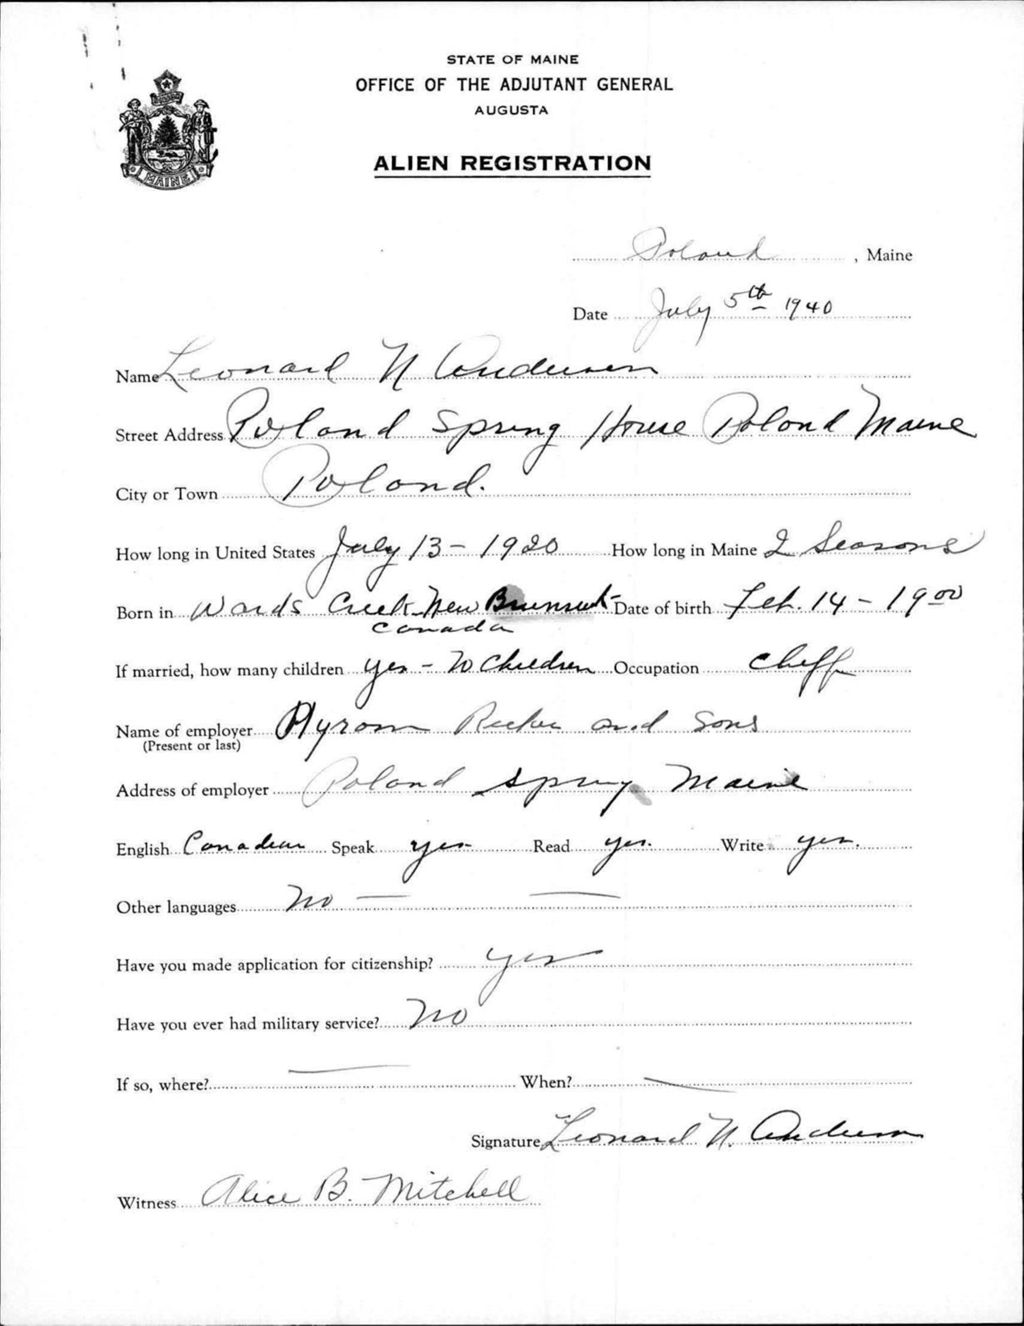 STATE OF MAINE
OFFICE OF THE ADJUTANT GENERAL
AUGUSTA
ALIEN REGISTRATION
MAINE
Poland, Maine
Date July 5th 1940
Name Leonard N Anderson
Street Address Poland Spring House Poland Maine
City or Town Poland.
How long in United States July 13 - 1920 How long in Maine 2 Seasons
Born in Wards Creek New Brunswick Date of birth Feb. 14 - 1900
Canada
If married, how many children yes - no Children Occupation cheff
Name of employer Hyrom Ricker and Sons
(Present or last)
Address of employer Poland Spring Maine
English Canadian Speak yes Read yes. Write yes.
Other languages No —
Have you made application for citizenship? yes
Have you ever had military service? No
If so, where? — When? —
Signature Leonard N. Anderson
Witness Alice B. Mitchell